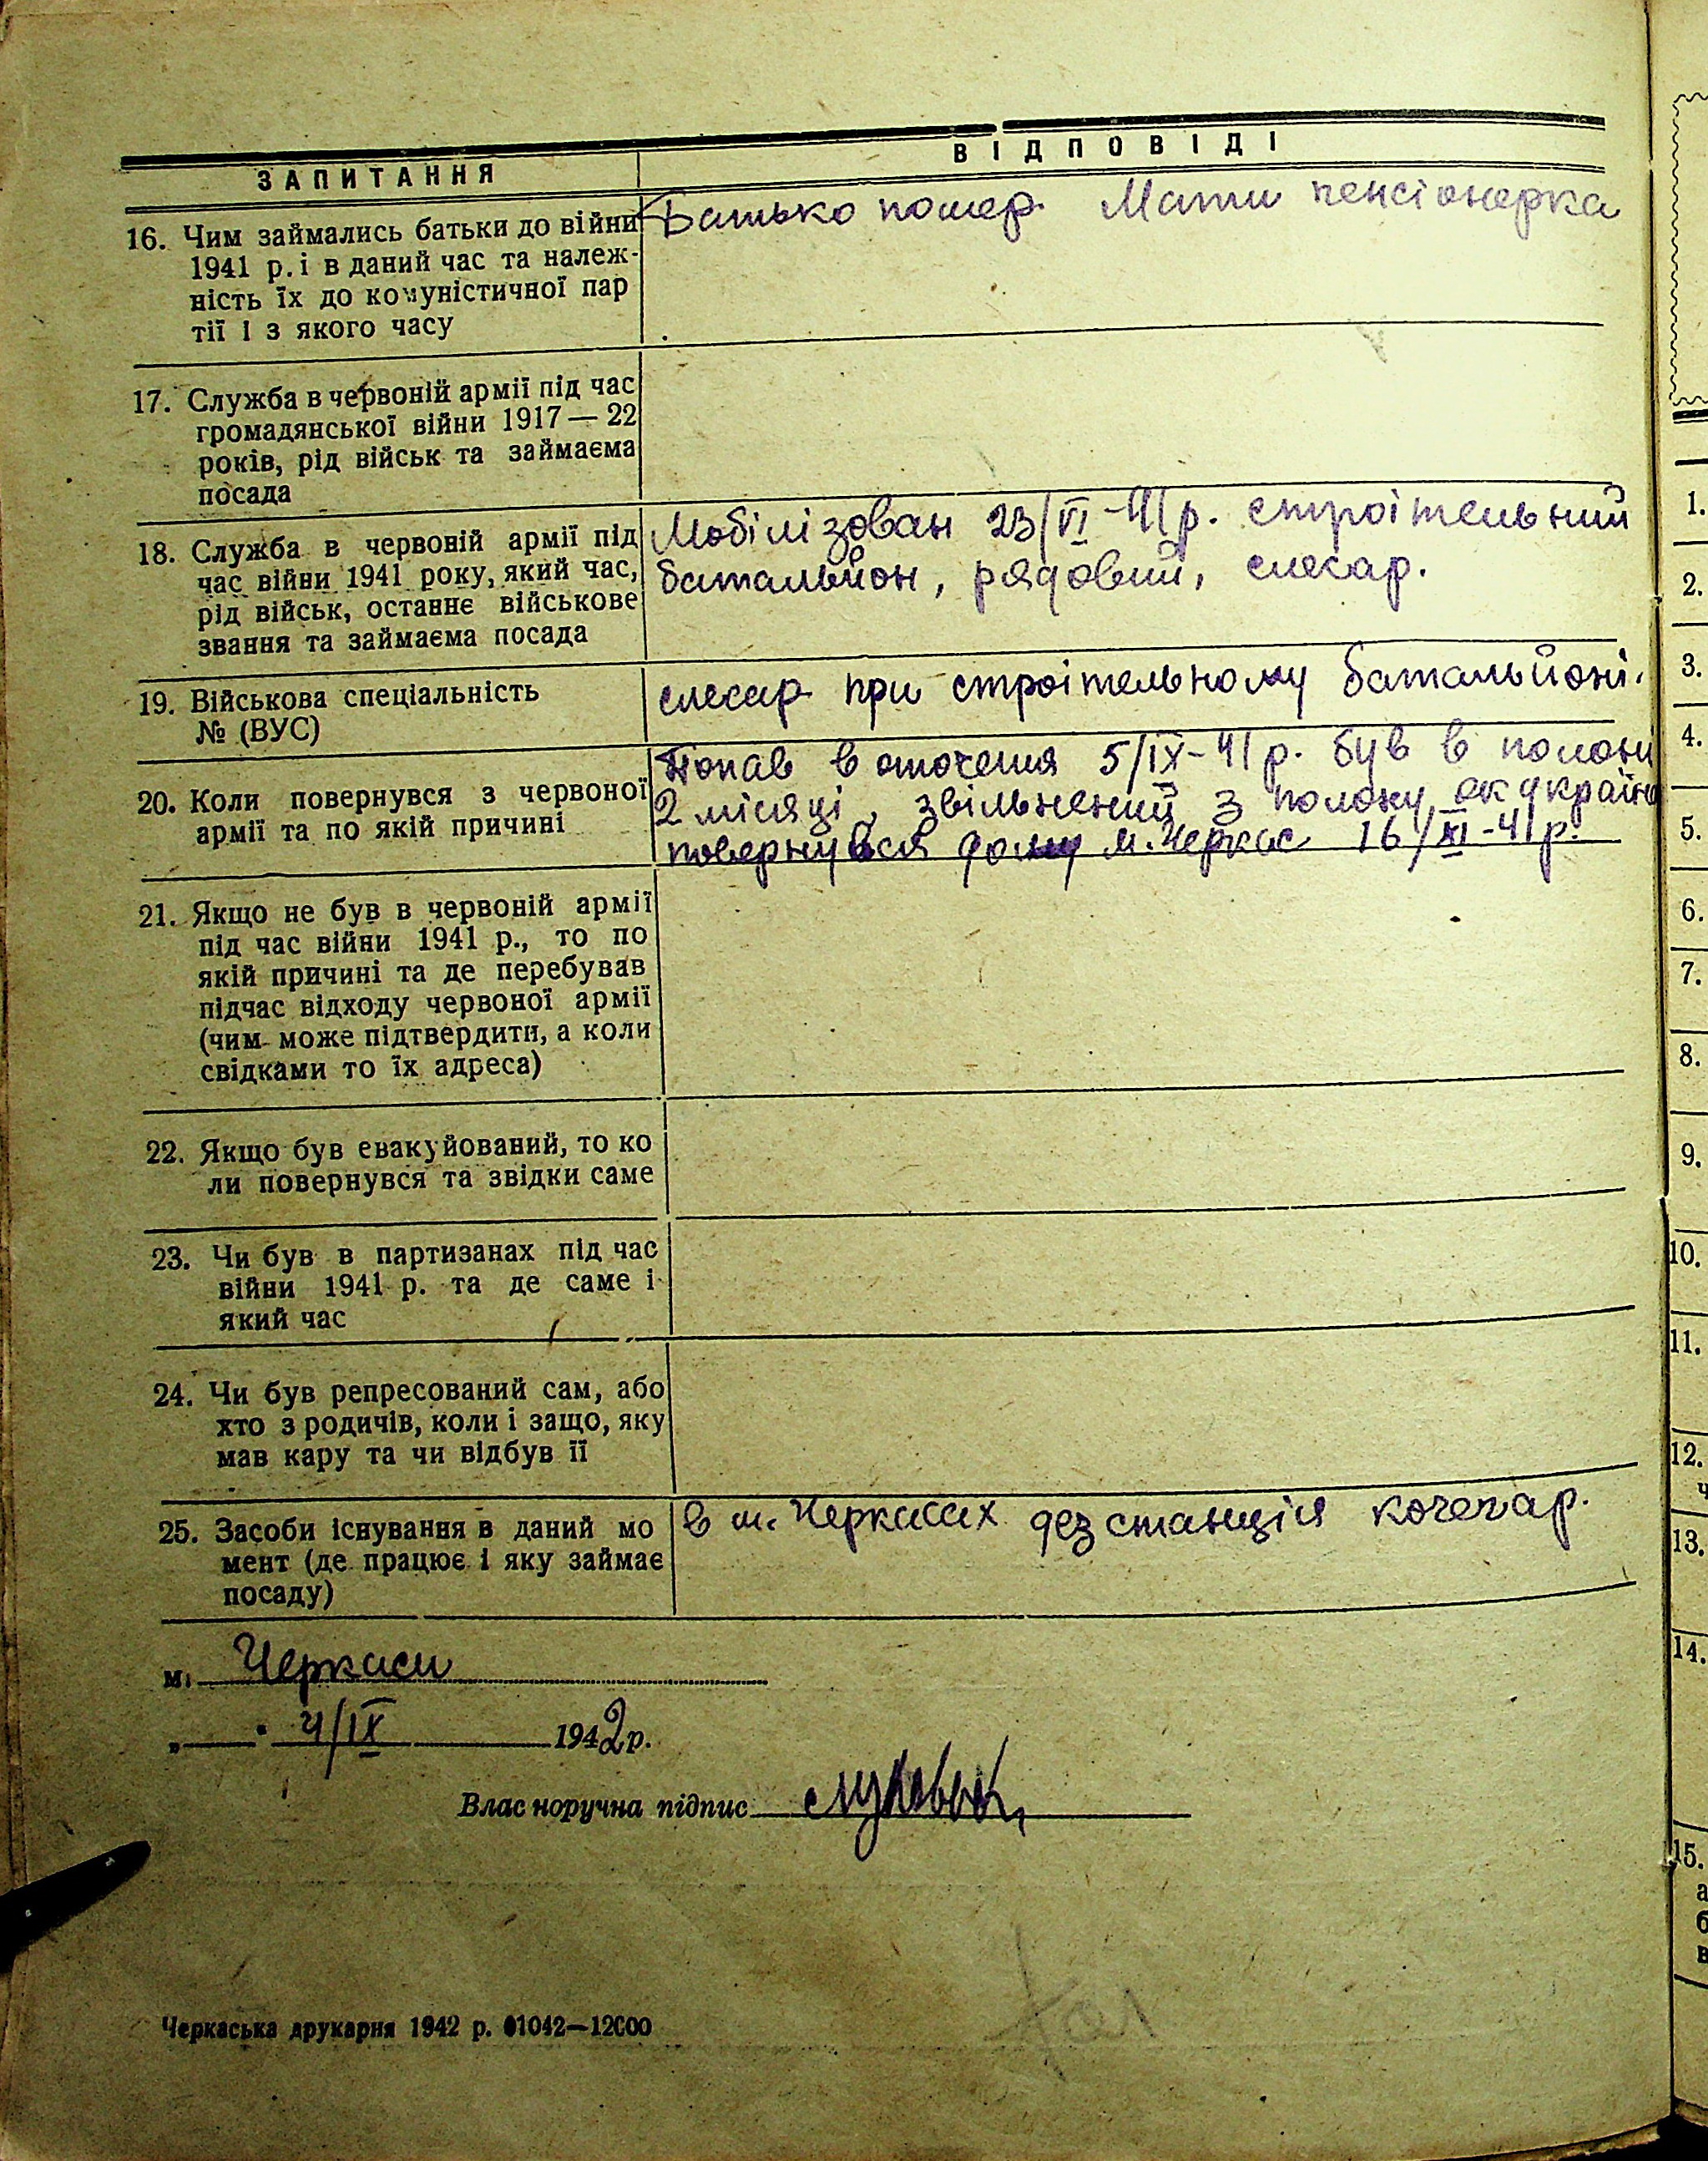 ЗАПИТАННЯ
ВІДПОВІДІ
16. Чим займались батьки до війни
1941 р. і в даний час та належ-
ність їх до комуністичної пар
тії і з якого часу
Батько помер. Мати пенсіонерка
17. Служба в червоній армії під час
громадянської війни 1917 — 22
років, рід військ та займаєма
посада
18. Служба в червоній армії під
час війни 1941 року, який час,
рід військ, останнє військове
звання та займаєма посада
Мобілізован 23/VI-41 р. строітельний
батальйон, рядовий, слесар.
19. Військова спеціальність
№ (ВУС)
слесар при строітельному батальйоні.
20. Коли повернувся з червоної
армії та по якій причині
Попав в оточення 5/IX-41 р. був в полоні
2 місяці, звільнений з полону як україне
повернувся дому м. Черкас 16/XI-41 р.
21. Якщо не був в червоній армії
під час війни 1941 р., то по
якій причині та де перебував
підчас відходу червоної армії
(чим може підтвердити, а коли
свідками то їх адреса)
22. Якщо був евакуйований, то ко
ли повернувся та звідки саме
23. Чи був в партизанах під час
війни 1941 р. та де саме і
який час
24. Чи був репресований сам, або
хто з родичів, коли і защо, яку
мав кару та чи відбув її
25. Засоби існування в даний мо
мент (де працює і яку займає
посаду)
в м. Черкасах дезстанція кочегар.
м. Черкаси
„ " 4/IX 1942 р.
Власноручна підпис
Черкаська друкарня 1942 р. 01042—12000
1.
2.
3.
4.
5.
6.
7.
8.
9.
10.
11.
12.
ч
13.
14.
15.
а
б
в